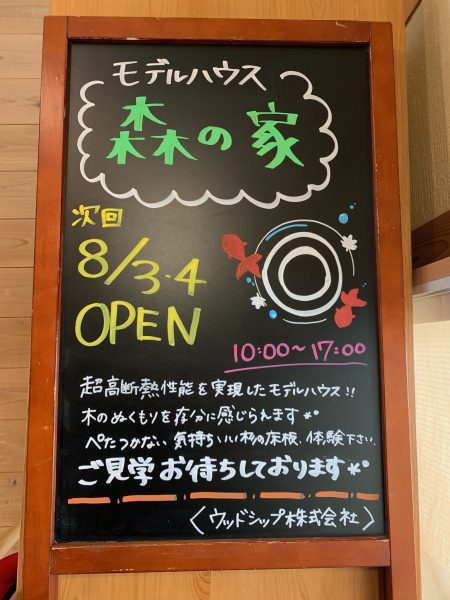 モデルハウス
森の家
次回
8/3・4
OPEN
10:00〜17:00
超高断熱性能を実現したモデルハウス!!
木のぬくもりを存分に感じられます
ベたつかない 気持ちいい杉の床板、体験下さい
ご見学お待ちしております
〈ウッドシップ株式会社〉